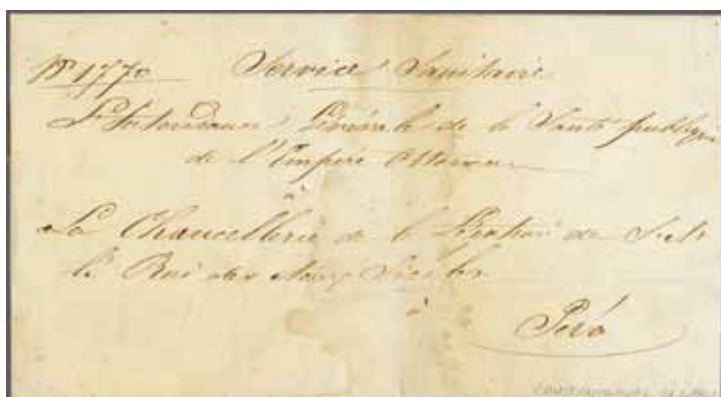 Nº 1770 Service Sanitaire
L'Intendance Générale de la Santé publique
de l'Empire Ottoman
à
La Chancellerie de la Légation de S. M.
le Roi des Deux Siciles
à
Péra